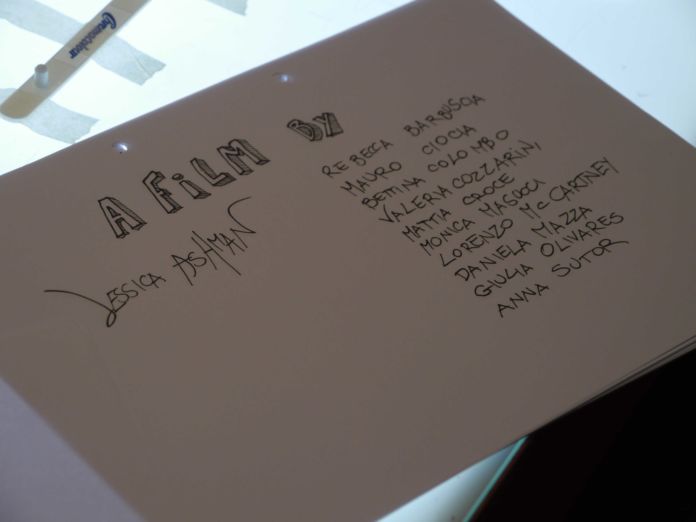 Chromacolour
A FiLM BY
JESSICA ASHMAN
REBECCA BARBUSCIA
MAURO CIOCIA
BETTINA COLOMBO
VALERIA COZZARINI,
MATTIA CROCE
MONICA MASOCI
LORENZO McCARTNEY
DANIELA MAZZA
GIULIA OLIVARES
ANNA SUTOR